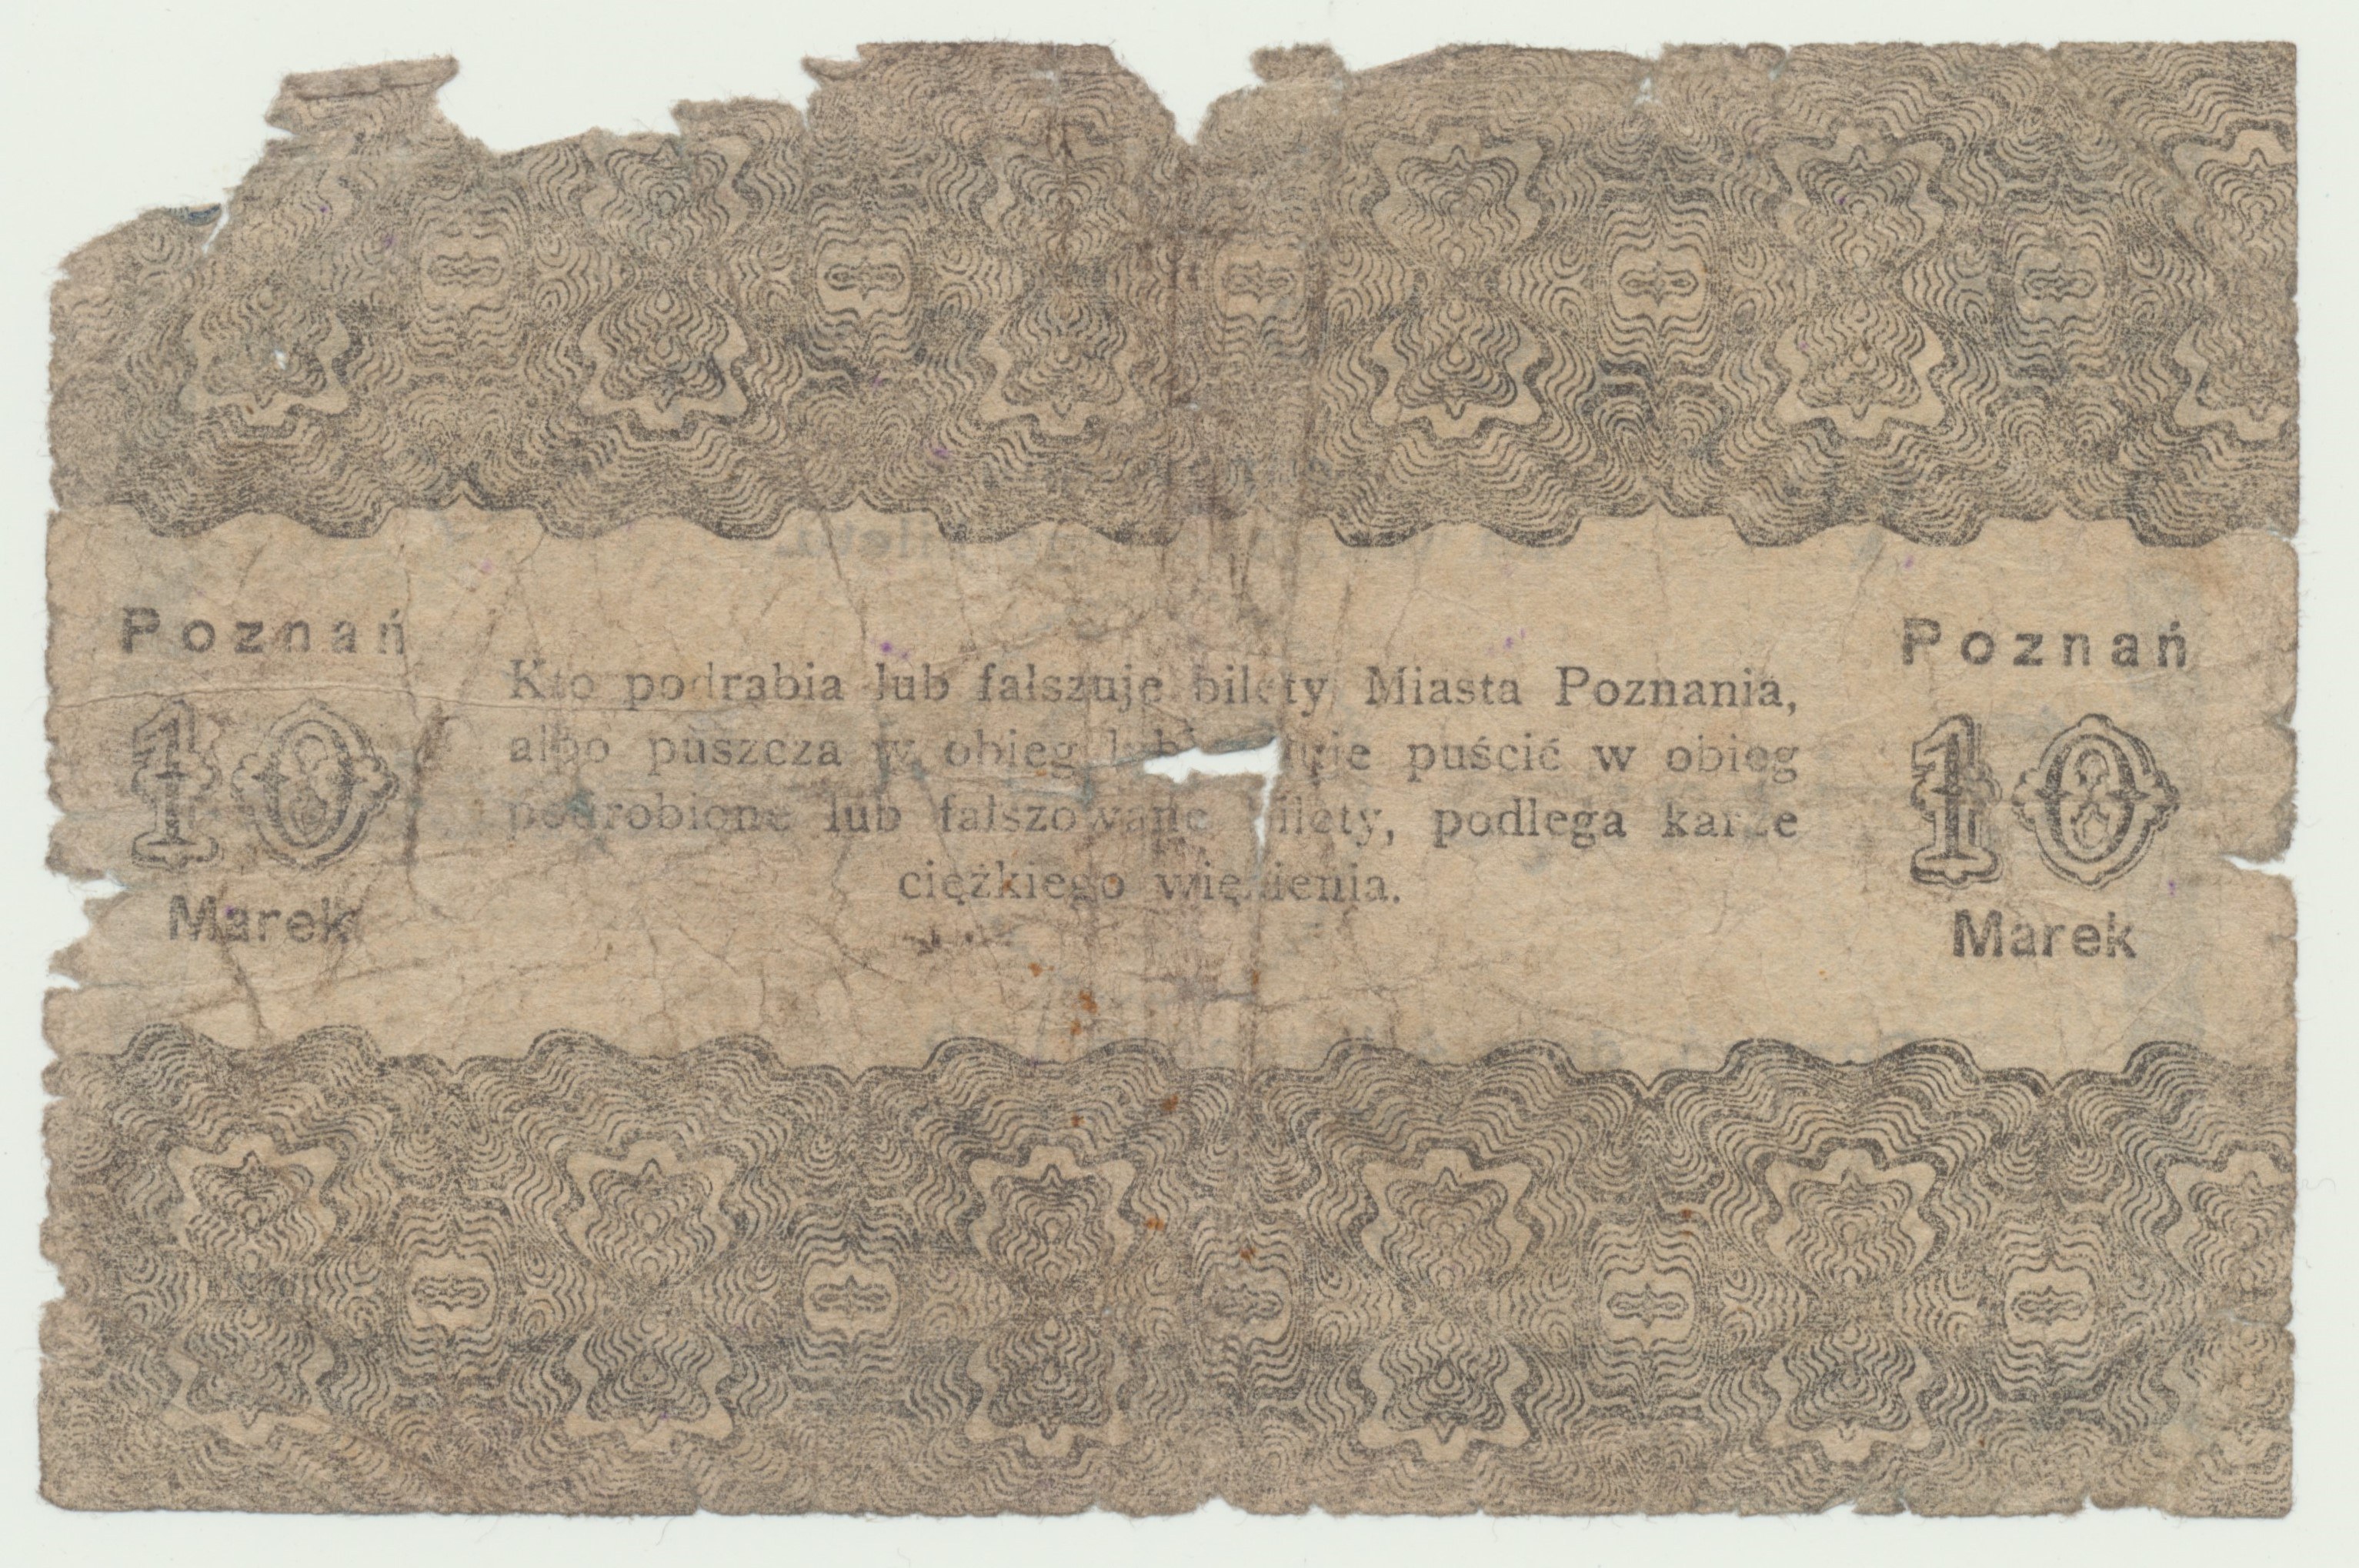 Poznań
10
Marek
Kto podrabia lub fałszuje bilety Miasta Poznania,
albo puszcza w obieg lub puścić w obieg
podrobione lub fałszowane bilety, podlega karze
ciężkiego więzienia.
Poznań
10
Marek